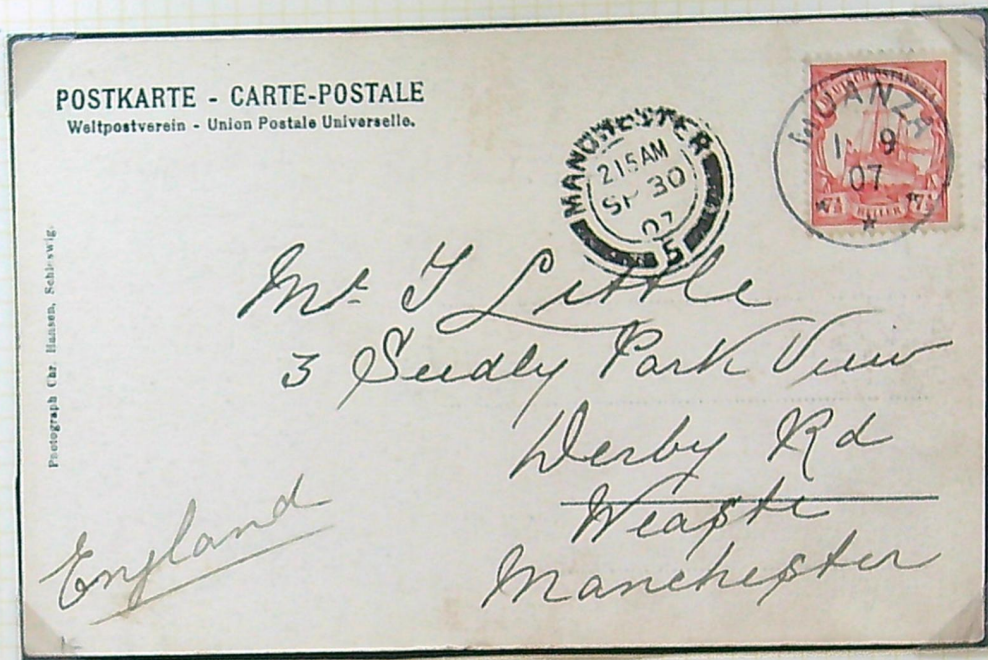 POSTKARTE - CARTE-POSTALE
Weltpostverein - Union Postale Universelle.
MANCHESTER
2 15 AM
SP 30
07
5
MUANZA
9
07
7½ HELLER 7½
Photograph Chr. Hansen, Schleswig.
Mr. T Little
3 Seedly Park View
Derby Rd
Weaste
Manchester
England